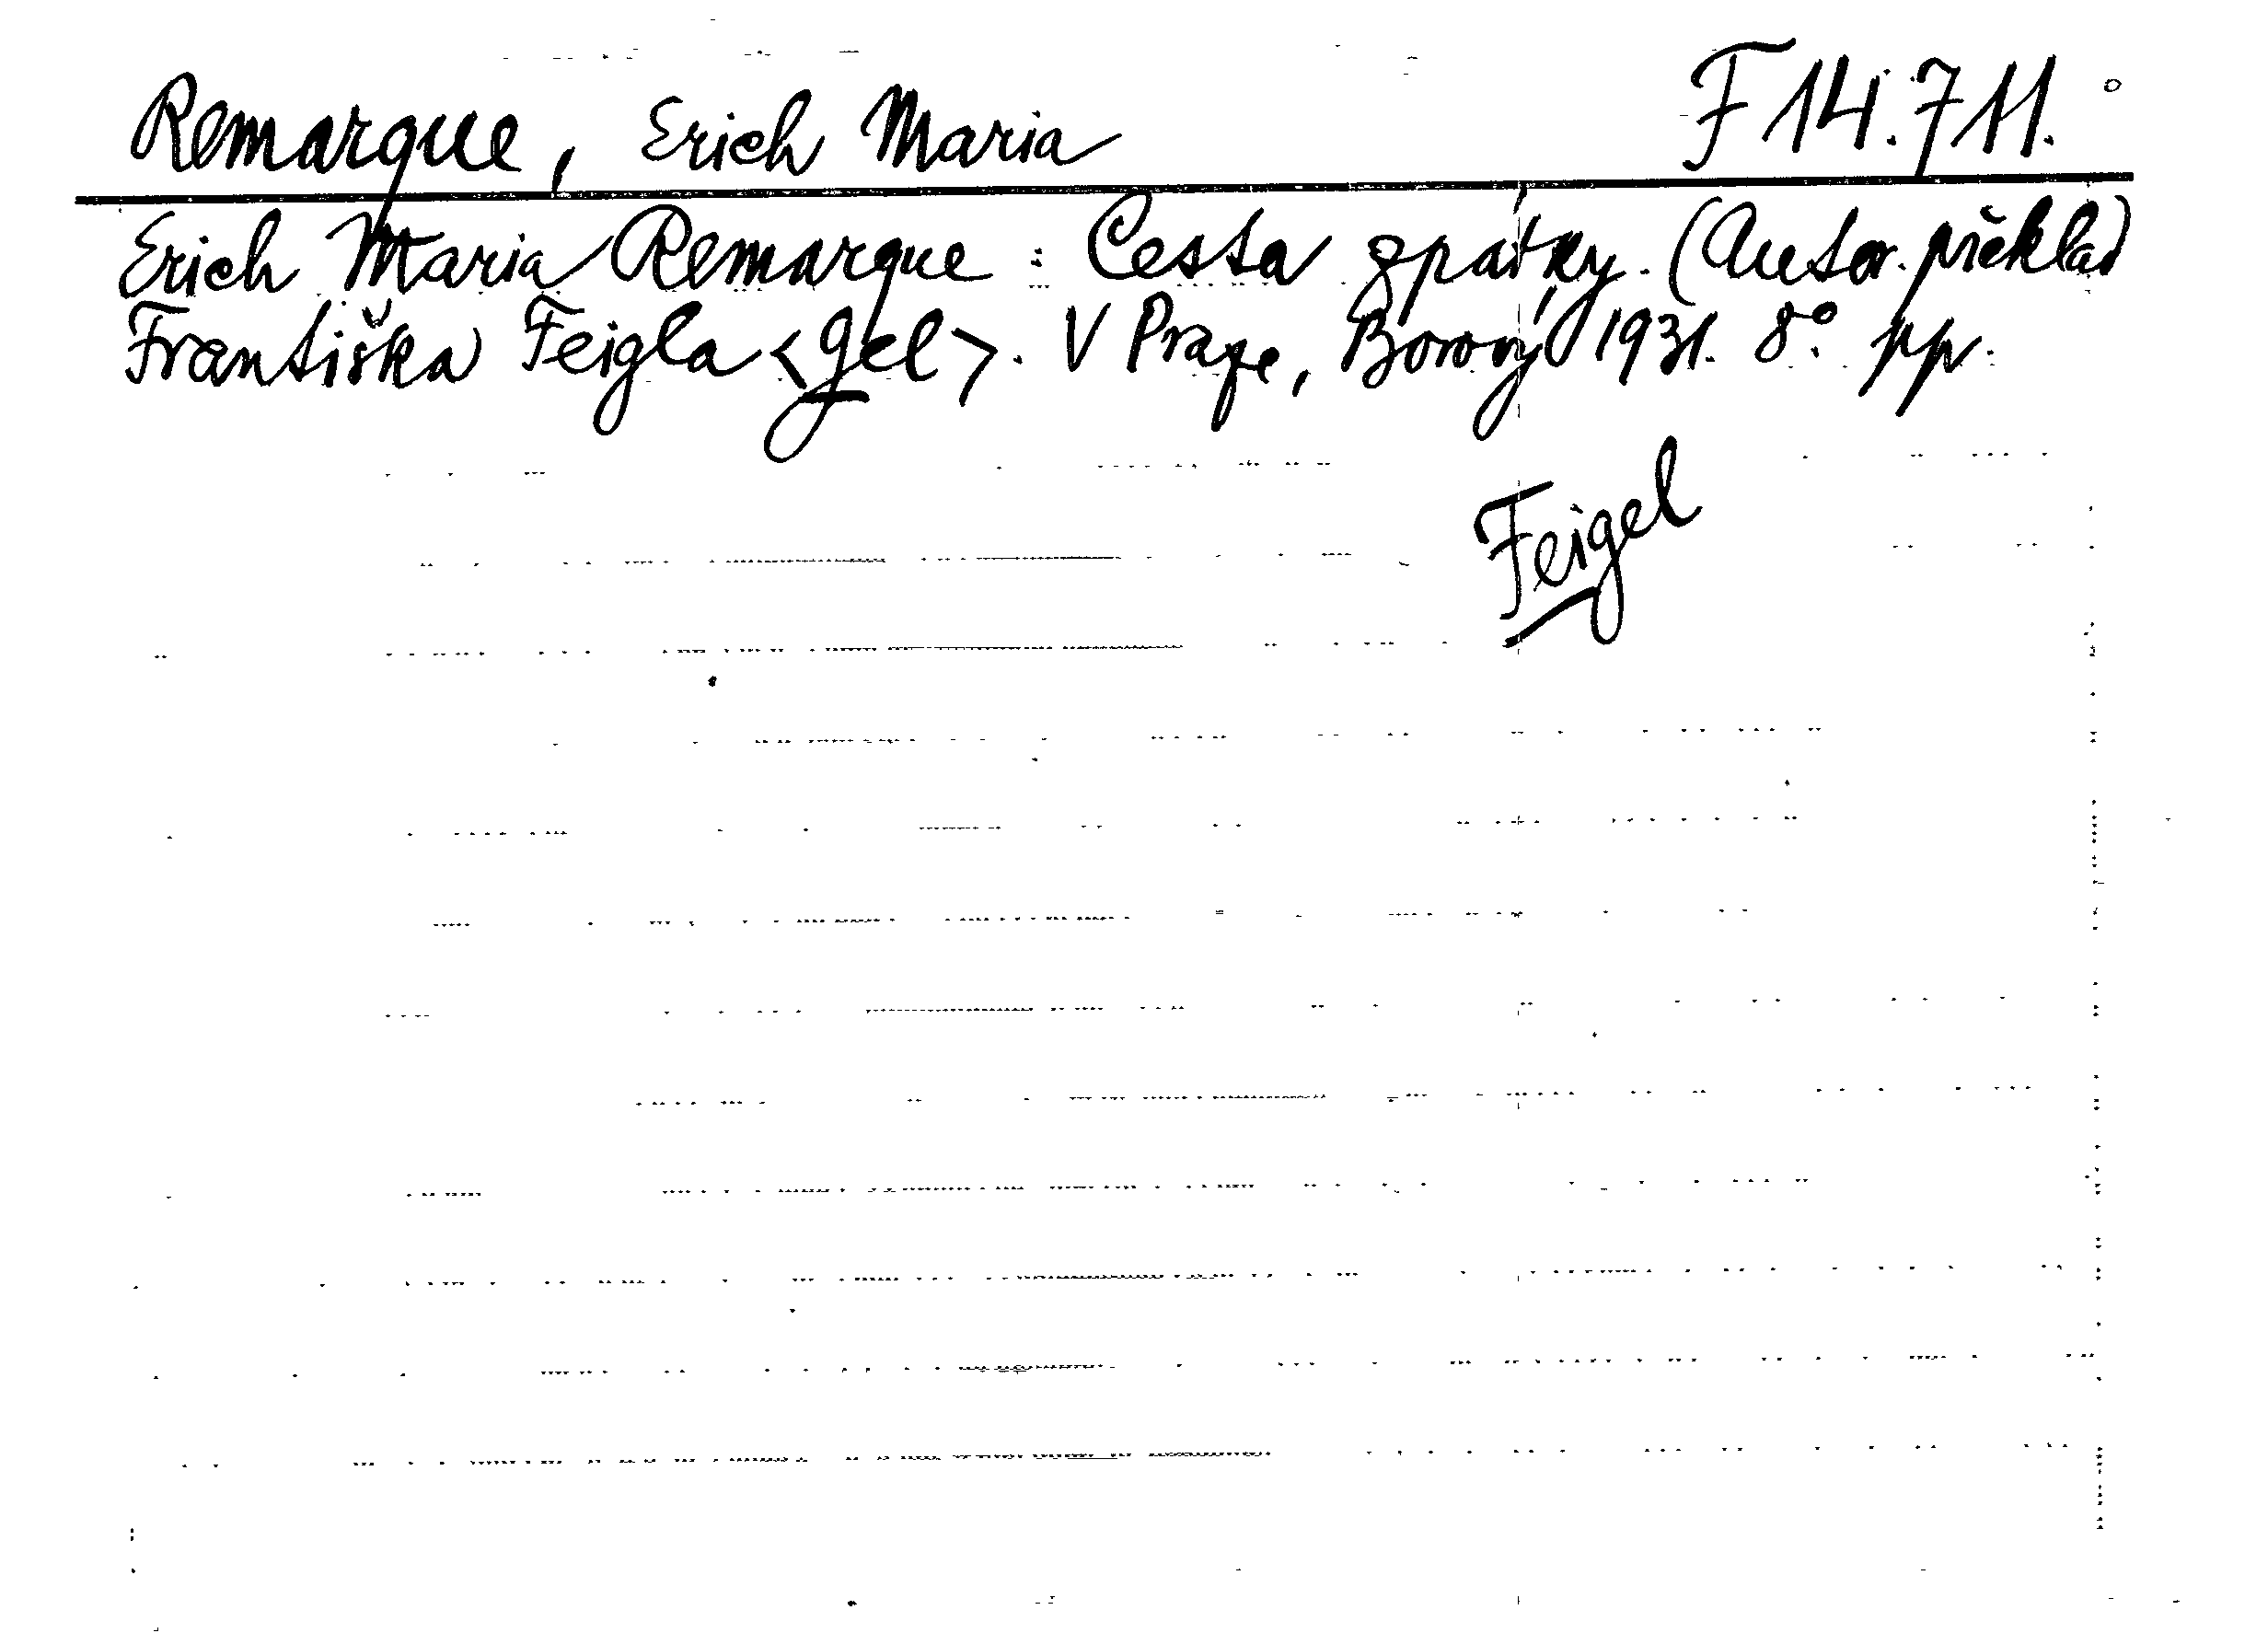 Remarque, Erich Maria F 14.711.
Erich Maria Remarque : Cesta zpátky. (Autor. překlad
Františka Feigla <gel>. V Praze, Borový 1931. 8° pp.
Feigel